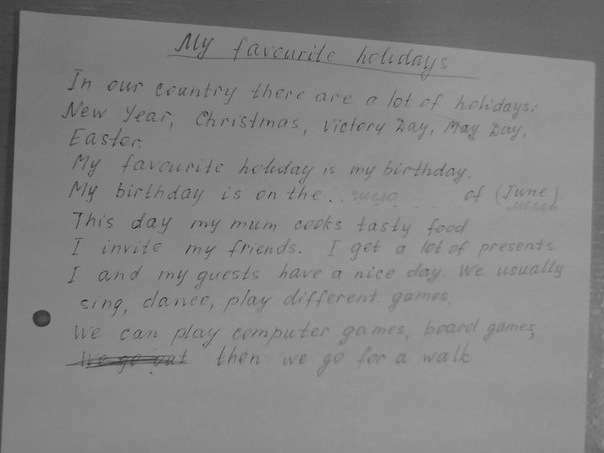 My favourite holidays
In our country there are a lot of holidays:
New Year, Christmas, Victory Day, May Day,
Easter.
My favourite holiday is my birthday.
My birthday is on the .. число .. of (June)
месяц
This day my mum cooks tasty food
I invite my friends. I get a lot of presents
I and my guests have a nice day. We usually
sing, dance, play different games.
We can play computer games, board games,
We go out then we go for a walk